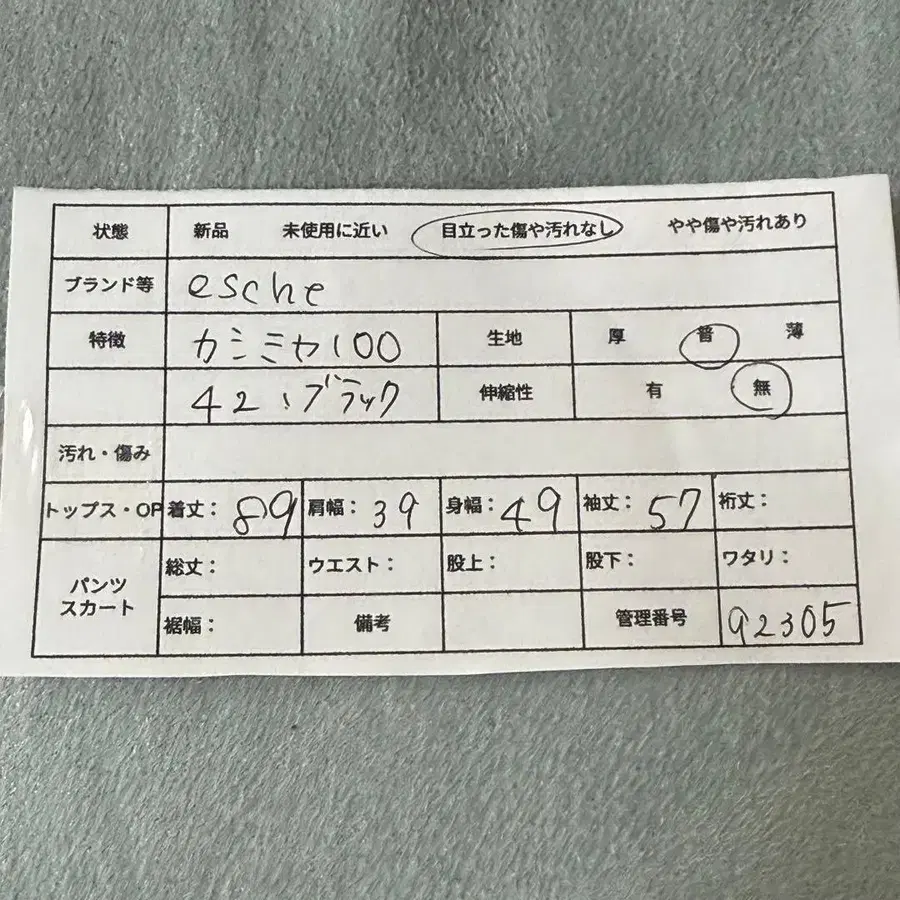 状態 新品 未使用に近い 目立った傷や汚れなし やや傷や汚れあり
ブランド等 esche
特徴 カシミヤ100 生地 厚 普 薄
42、ブラック 伸縮性 有 無
汚れ・傷み
トップス・OP 着丈：89 肩幅：39 身幅：49 袖丈：57 裄丈：
パンツ スカート 総丈： ウエスト： 股上： 股下： ワタリ：
裾幅： 備考 管理番号 92305